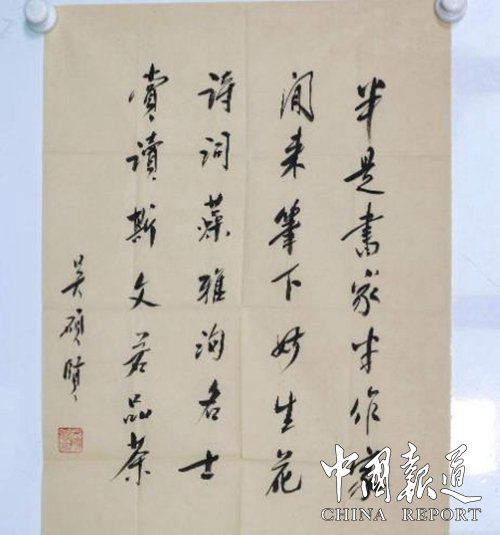 半是書家半作家
闲来筆下妙生花
诗词藻雅洵名士
赏讀斯文若品茶
吴硕賢
中國報道
CHINA REPORT